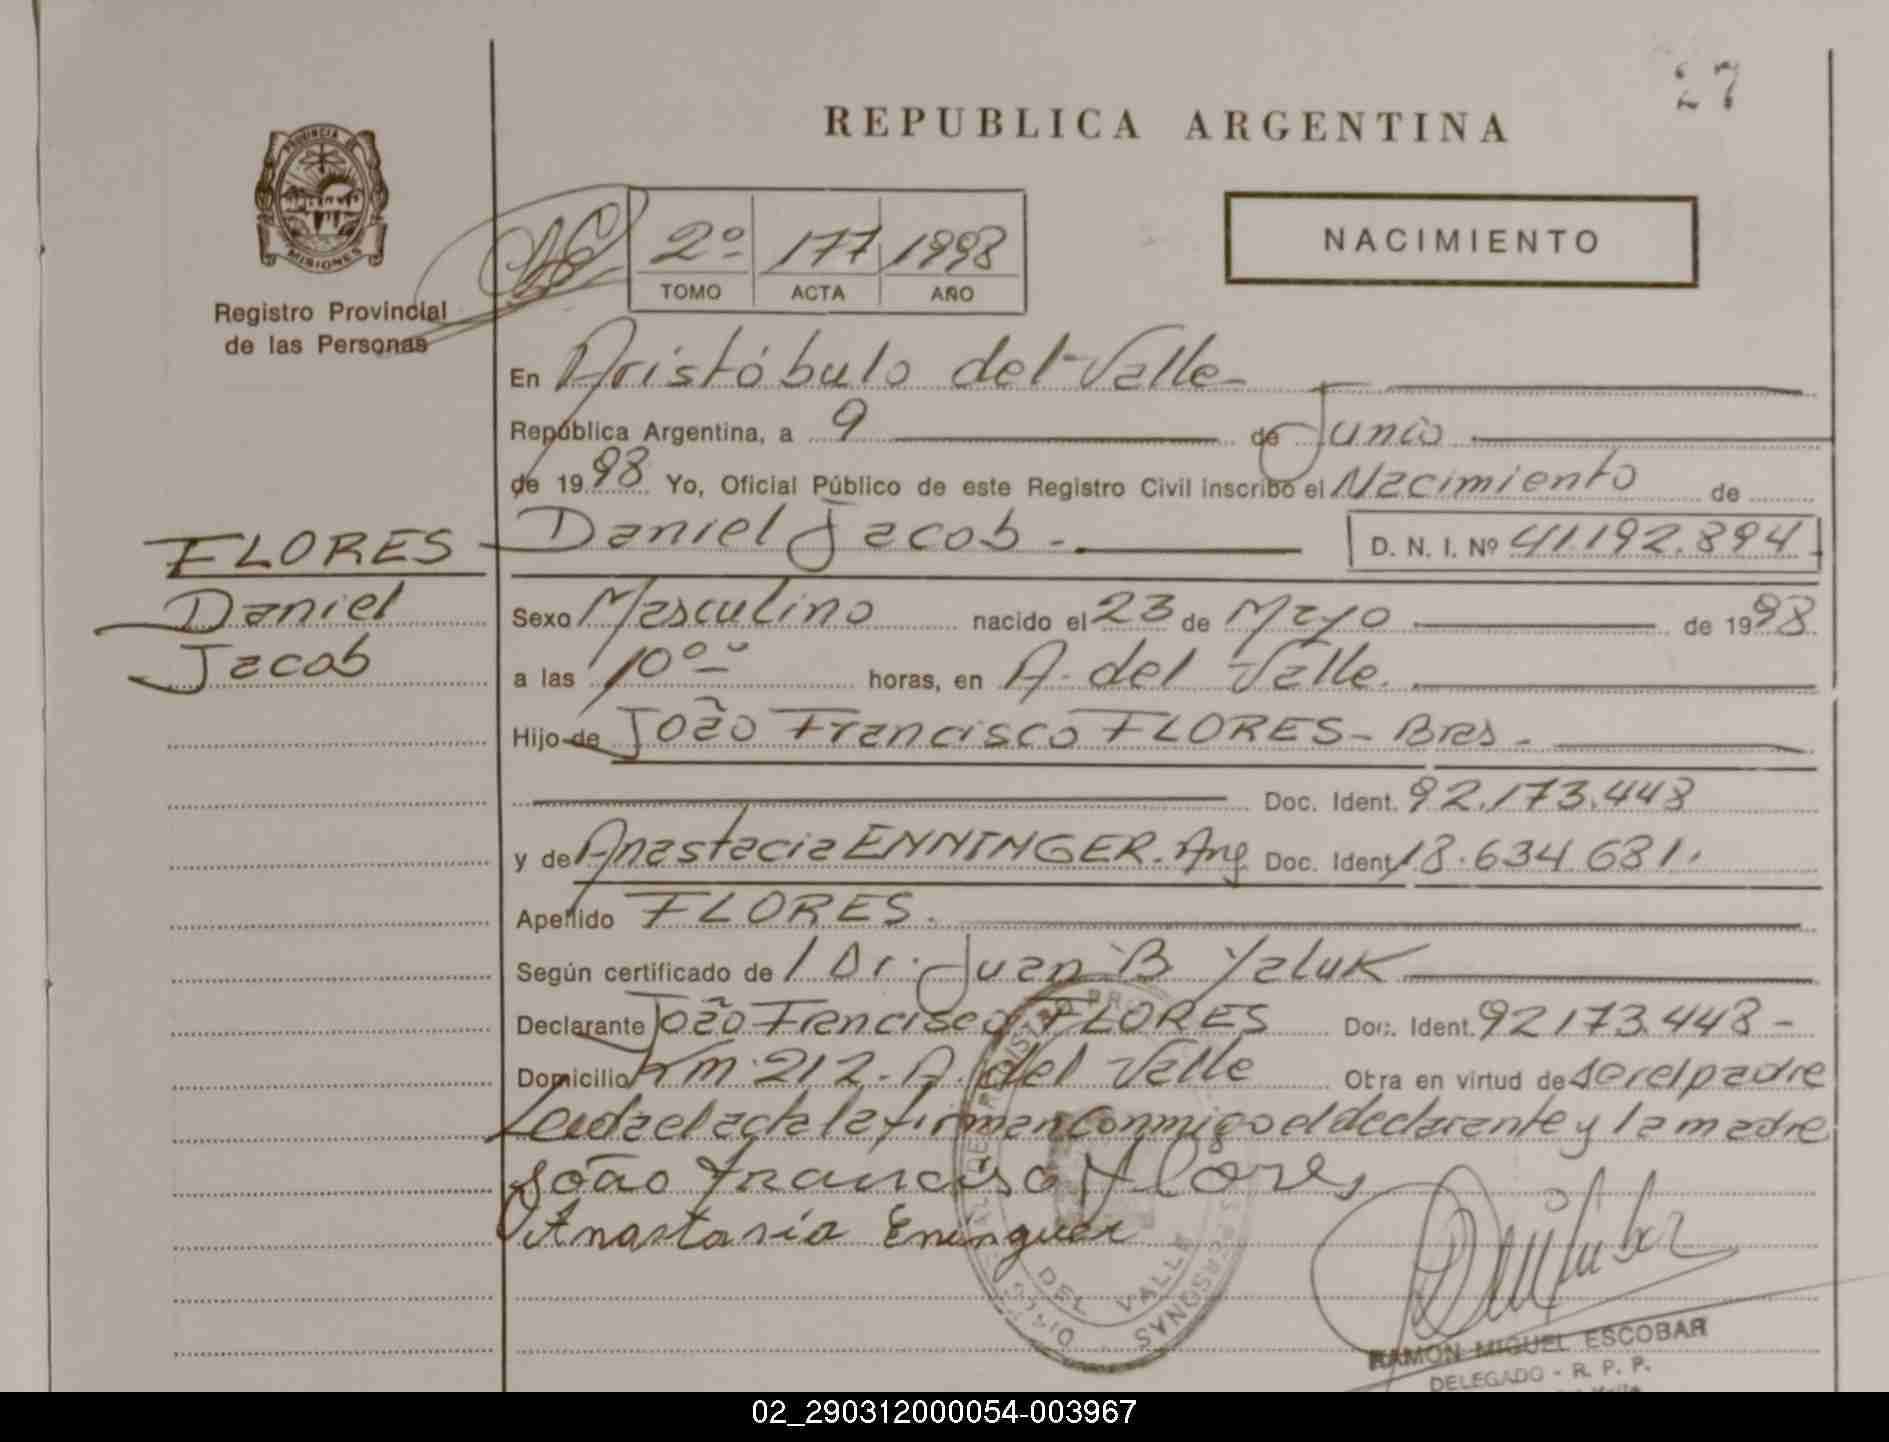 27
REPUBLICA ARGENTINA
PROVINCIA DE
MISIONES
Registro Provincial
de las Personas
2º 177 1998
TOMO ACTA AÑO
NACIMIENTO
En Aristóbulo del Valle-
República Argentina, a 9 de Junio
de 1998 Yo, Oficial Público de este Registro Civil inscribo el Nacimiento de
FLORES
Daniel
Jacob
Daniel Jacob - D. N. I. Nº 41.192.894
Sexo Masculino nacido el 23 de Mayo de 1998
a las 10ºº horas, en A. del Valle.
Hijo de João Francisco FLORES- Bras -
Doc. Ident. 92.173.448
y de Anastacia ENNINGER. Arg Doc. Ident. 18.634.681.
Apellido FLORES.
Según certificado de / Dr. Juan B Yaluk
Declarante João Francisco FLORES Doc. Ident. 92173.448-
Domicilio Km. 212- A. del Valle Otra en virtud de ser el padre
Leida el acta la firman conmigo el declarante y la madre
João Francisco Flores
Anastasia Eninguer
DEL VALLE
RAMON MIGUEL ESCOBAR
DELEGADO - R. P. P.
02_290312000054-003967